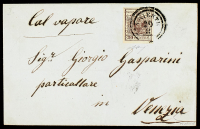 Col vapore
Sigr. Giorgio Gasparini
particolare
in
Venezia